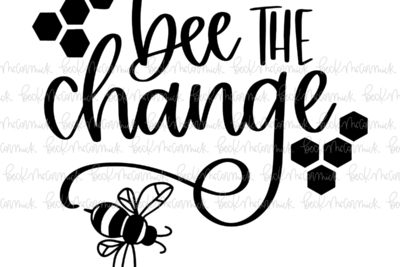 bee THE
change